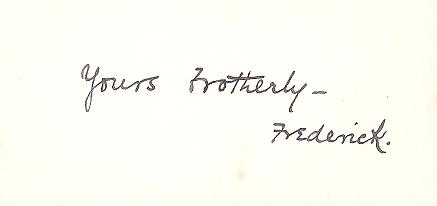 Yours Frotherly–
Frederick.